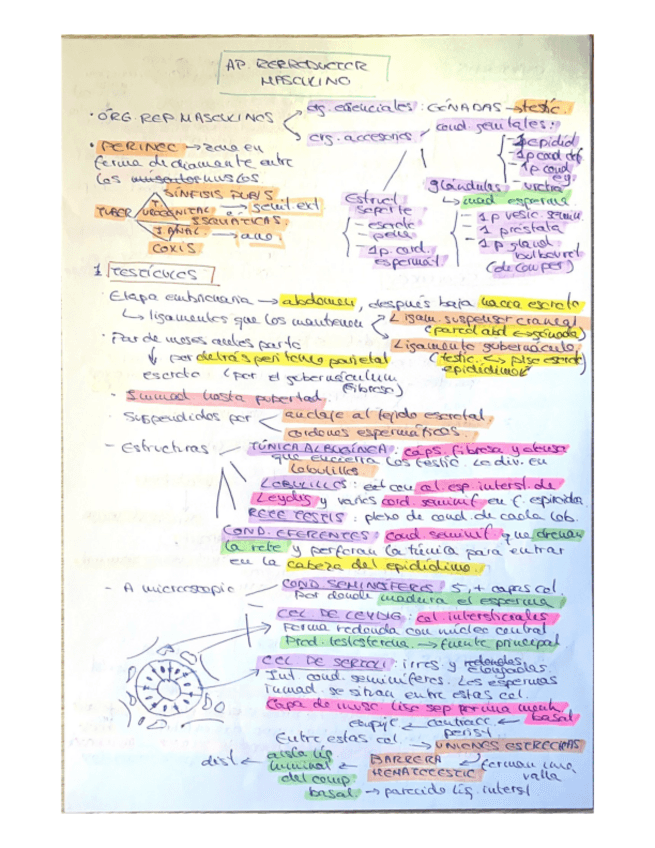 AP. REPRODUCTOR
MASCULINO
· ORG. REP. MASCULINOS
org. esenciales: GÓNADAS → testíc.
org. accesorios
cond. genitales:
- 1p epidid
- 1p cond def
- 1p cond ey.
- uretra
glándulas
↳ prod esperma
- 1p vesíc. semin
- 1 próstata
- 1p gland bulbouret
(de Cowper)
Estruct
soporte
- escroto
- pene
- 1p. cord.
espermát
· PERINEO → zona en
forma de diamante entre
los muslos
SÍNFISIS PUBIS
TUBER
UROGENITAL → genit. ext
ISQUIÁTICAS
T. ANAL → ano
COXIS
1 TESTÍCULOS
· Etapa embrionaria → abdomen, después baja hacia escroto
↳ ligamentos que los mantienen
Ligam. suspensor craneal
(pared abd ↔ gónada)
Ligamento gubernáculo
(testíc. ↔ piso escroto)
epidídimo
· Par de meses antes parto
↓ por detrás peritoneo parietal
escroto (por el gubernáculum
(fibroso)
- Inmad hasta pubertad.
· Suspendidos por
anclaje al tejido escrotal.
cordones espermáticos.
- Estructuras
TÚNICA ALBUGÍNEA: caps. fibrosa y densa
que encierra los testíc. Lo div. en
lobulillos
LOBULILLOS: est con cel. esp. interst. de
Leydig y varios cond. seminíf en f. espiroidal
RETE TESTIS: plexo de cond. de cada lob.
COND. EFERENTES: cond. seminíf que drenan
la rete y perforan la túnica para entrar
en la cabeza del epidídimo.
- A microscopic
COND SEMINÍFEROS: 5, + capas cel.
por donde madura el esperma
CEL DE LEYDIG: cel. intersticiales
Forma redonda con núcleo central
Prod. testosterona → fuente principal
CEL DE SERTOLI: irreg y alongadas.
Int. cond. seminíferos. Los espermas
inmad. se sitúan entre estas cel.
Capa de musc liso sep por una memb
basal
empuje ← contracc. perist
Entre estas cel. → UNIONES ESTRECHAS
forman una
valla
BARRERA
HEMATOTESTIC
aísla líq
luminal
del comp.
basal. → parecido líq. interst
dist ←